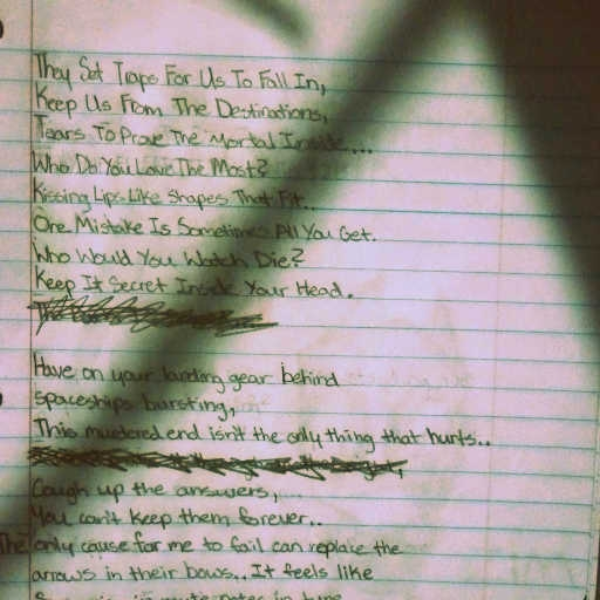 They Set Traps For Us To Fall In,
Keep Us From The Destinations,
Tears To Prove The Mortal Inside...
Who Do You Love The Most?
Kissing Lips Like Shapes That Fit..
One Mistake Is Sometimes All You Get.
Who Would You Watch Die?
Keep It Secret Inside Your Head.
Have on your landing gear behind
spaceships bursting,
This murdered end isn't the only thing that hurts..
Cough up the answers,
You can't keep them forever..
The only cause for me to fail can replace the
arrows in their bows.. It feels like
in mute notes in tune